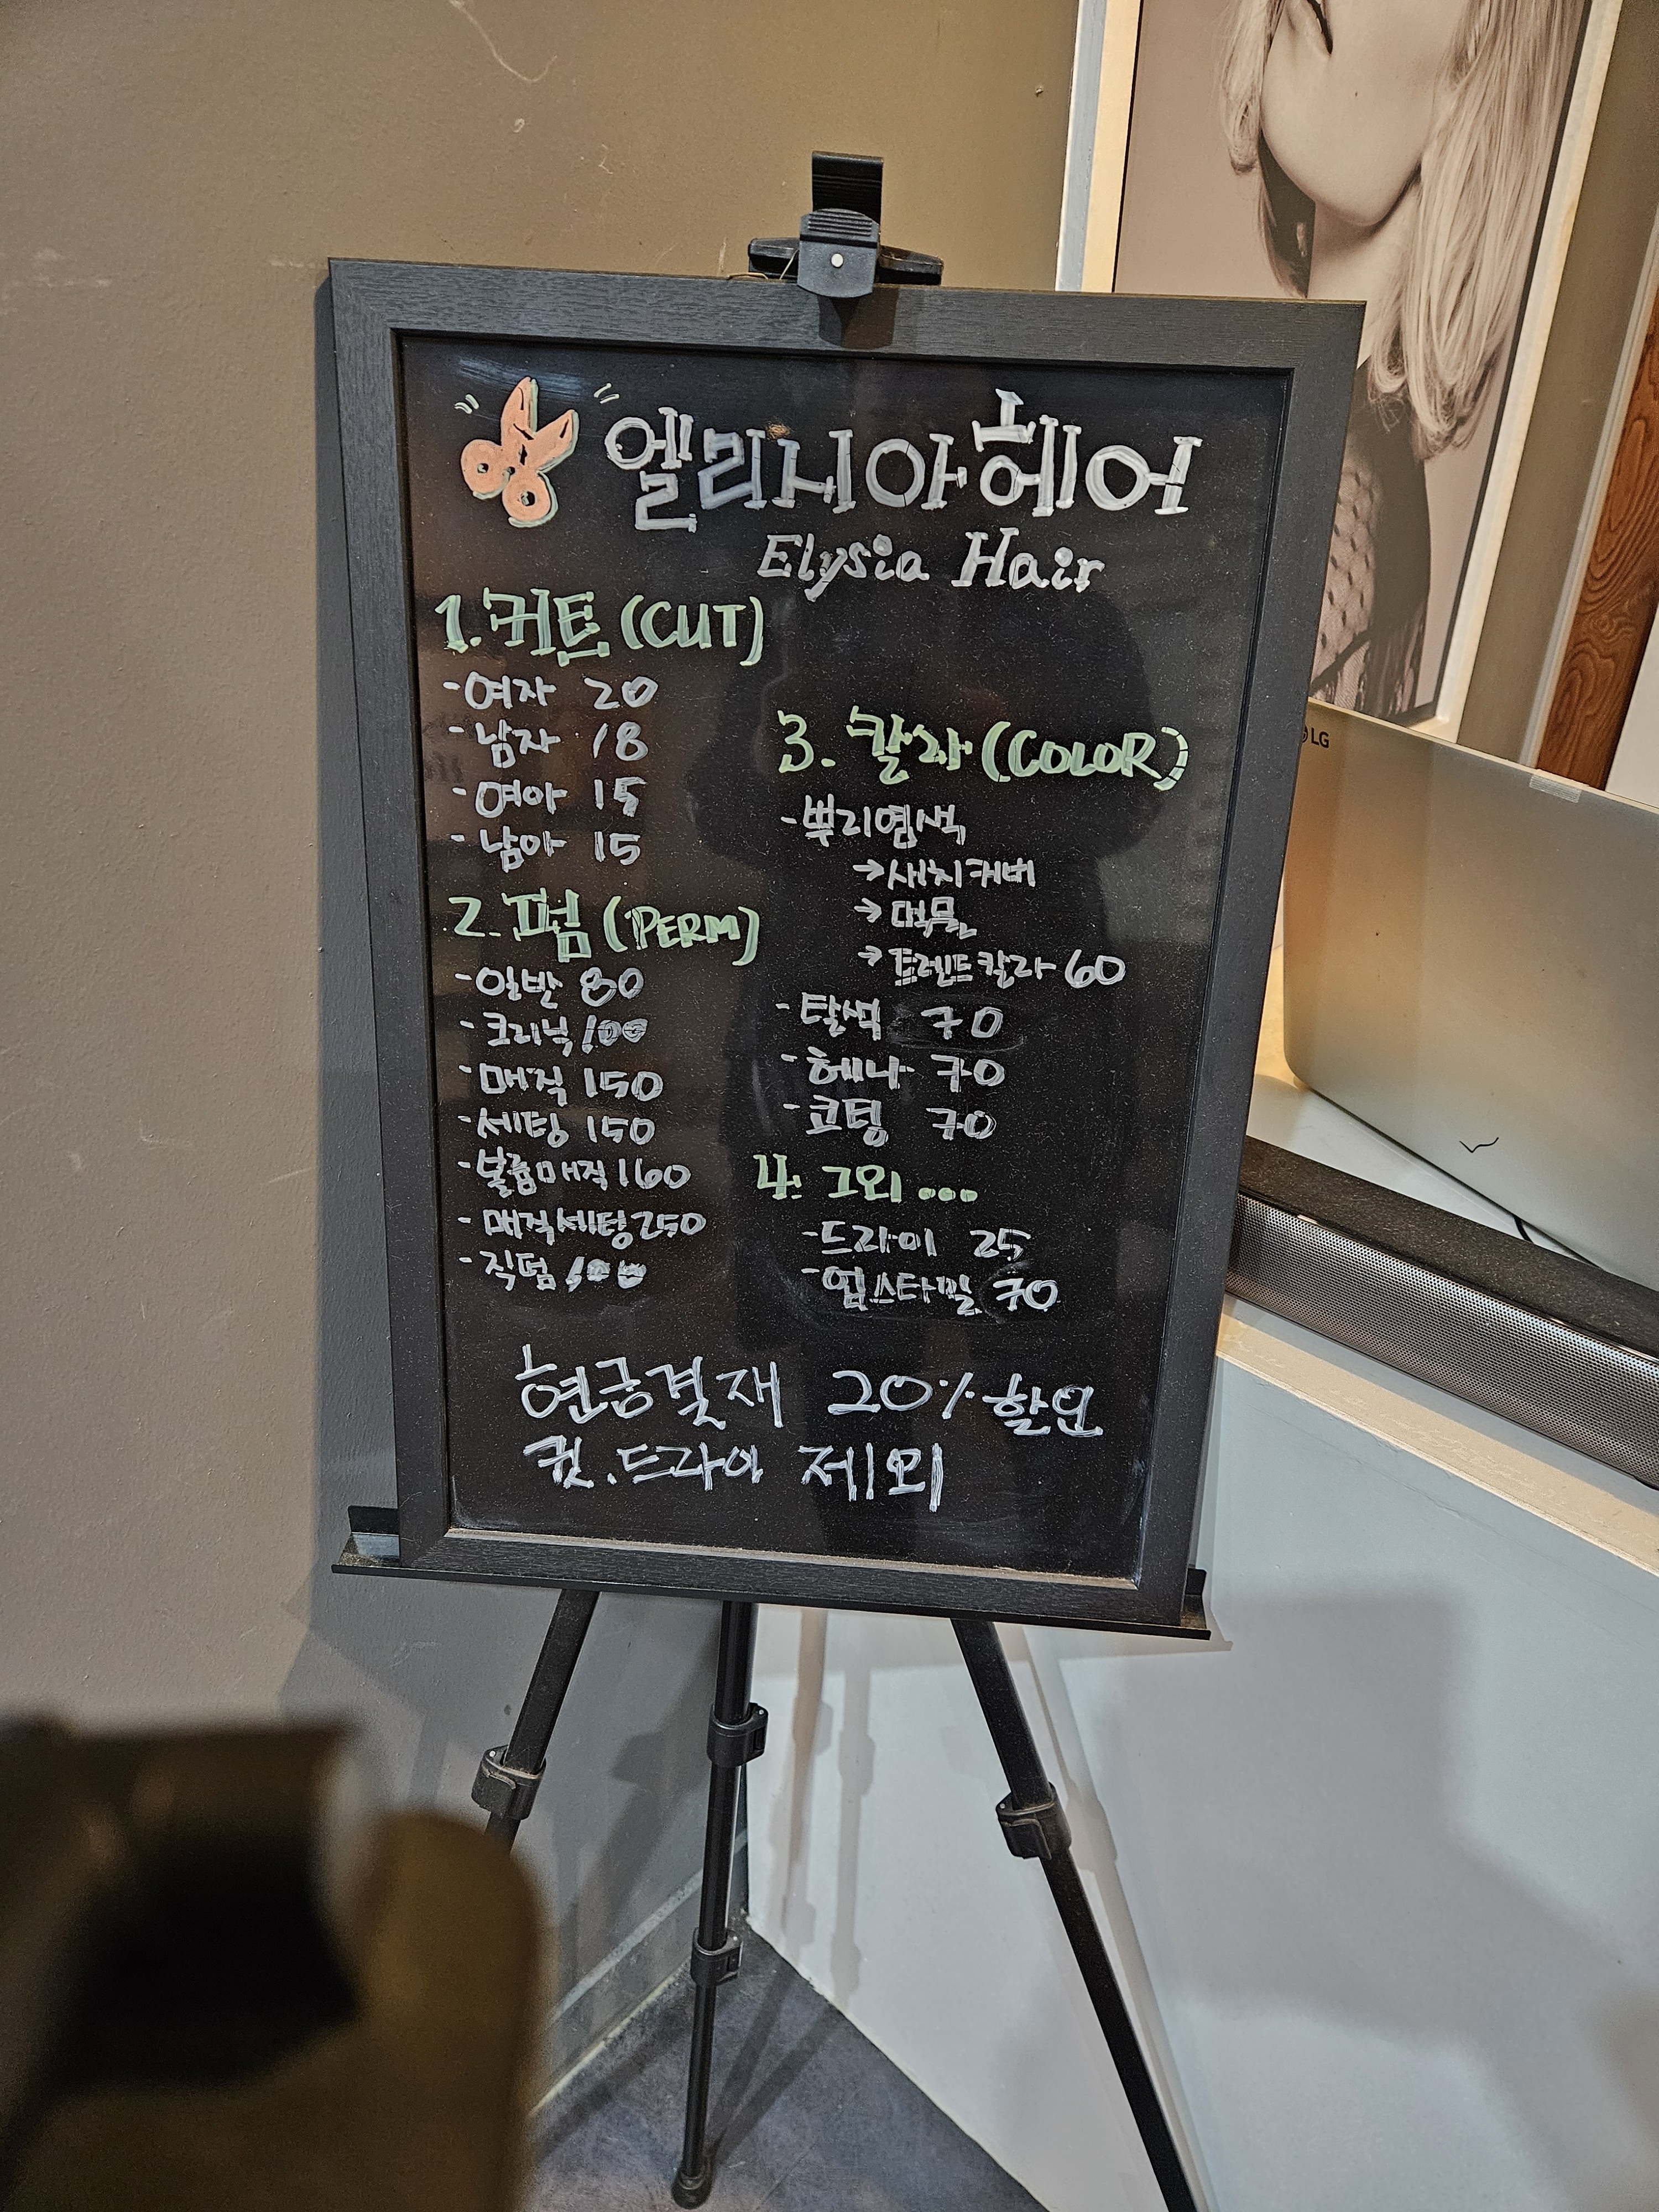 엘리시아헤어
Elysia Hair
1. 커트 (CUT)
- 여자 20
- 남자 18
- 여아 15
- 남아 15
2. 펌 (PERM)
- 일반 80
- 크리닉 100
- 매직 150
- 세팅 150
- 볼륨매직 160
- 매직세팅 250
- 직펌 100
3. 칼라 (COLOR)
- 뿌리염색
→ 새치커버
→ 멋물
→ 트렌드칼라 60
- 탈색 70
- 헤나 70
- 코팅 70
4. 그외 ....
- 드라이 25
- 업스타일 70
현금결재 20% 할인
컷.드라이 제외
LG